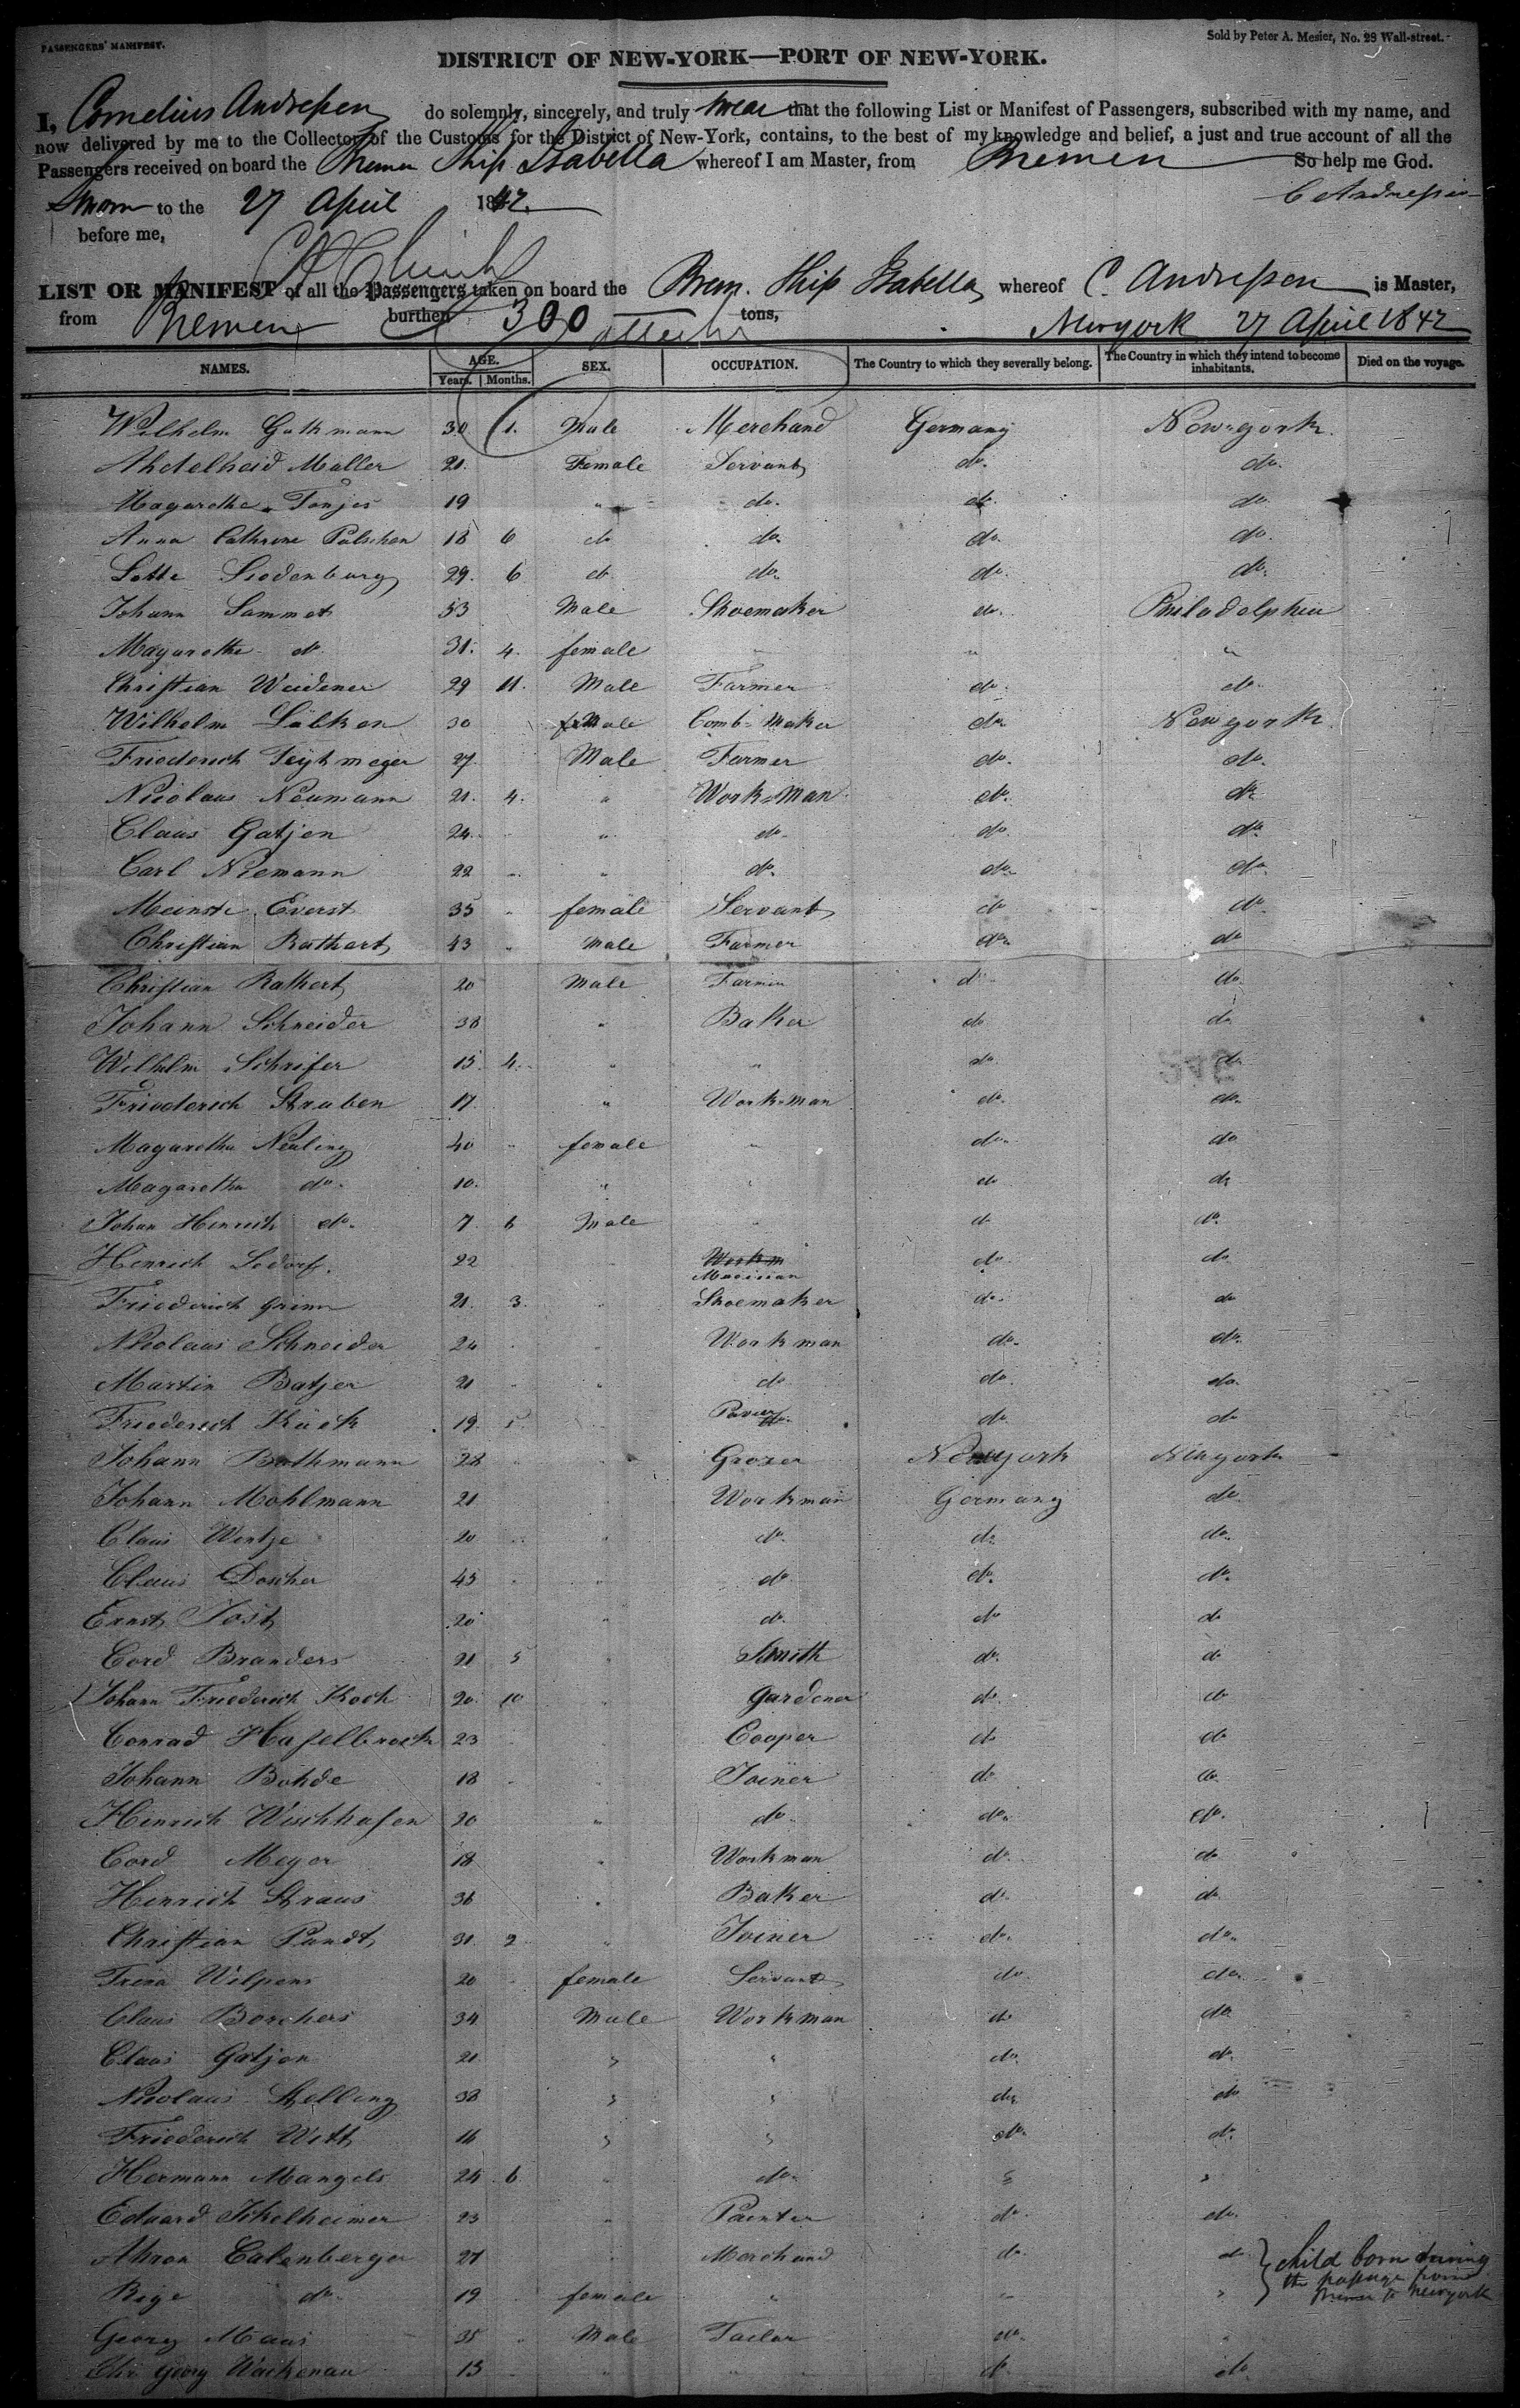 PASSENGERS' MANIFEST.
Sold by Peter A. Mesier, No. 28 Wall-street.
DISTRICT OF NEW-YORK—PORT OF NEW-YORK.
I, Cornelius Andreſsen do solemnly, sincerely, and truly swear that the following List or Manifest of Passengers, subscribed with my name, and
now delivered by me to the Collector of the Customs for the District of New-York, contains, to the best of my knowledge and belief, a just and true account of all the
Passengers received on board the Bremer Ship Isabella whereof I am Master, from Bremen So help me God.
Sworn to the 27 April 1842. C Andreſsen
before me,
LIST OR MANIFEST of all the Passengers taken on board the Brem. Ship Isabella whereof C. Andreſsen is Master,
from Bremen burthen 300 tons, Newyork 27 April 1842
NAMES. AGE. Years. Months. SEX. OCCUPATION. The Country to which they severally belong. The Country in which they intend to become inhabitants. Died on the voyage.
Wilhelm Gathmann 30 1. Male Merchand Germany New-york.
Ahdelheid Muller 21. Female Servant do. do.
Magarethe Tonjes 19 " do. do. do.
Anna Cathrine Polschen 18 6 do do. do. do.
Lotte Siedenburg 29. 6 do do. do. do.
Johann Sammet 53 Male Shoemaker do. Philadelphia
Magarethe do 31. 4. female " " "
Chriſtian Weidener 29 11. Male Farmer do. do.
Wilhelm Lübken 30 Male Comb-Maker do Newyork
Friederich Feythmeyer 27. Male Farmer do. do.
Nicolaus Neumann 21. 4. " Work-Man do. do
Claus Gatjen 24. " do. do. do.
Carl Niemann 22 " do. do. do.
Meinste Everst 35 female Servant do do.
Chriſtian Rathert 43 Male Farmer do. do
Chriſtian Rathert 20 Male Farmer do do.
Johann Schneider 38 " Baker do do
Wilhelm Schrifer 15. 4. " " do. do
Friederich Struben 17. " Work-man do. do.
Magaretha Neuling 40 female " do. do
Magaretha do. 10. " do do
Johan Hinrich do. 7. 6 Male do do.
Henrich Ledorf. 22 Musician do. do
Friederich Grimm 21. 3. " Shoemaker do. do
Nicolaus Schneider 24 Workman do. do.
Martin Batjer 21 " do do. do.
Friederich Kück 19. 5 Pavier do. do
Johann Bathmann 28 Grozer Newyork Newyork
Johann Mohlmann 21 " Workman Germany do.
Claus Wintje 20 " do. do. do.
Claus Doscher 45 do. do. do.
Ernst Jost 20 " do. do do
Cord Branders 21 5 " Smith do. do
Johann Friederich Koch 20. 10 " Gardener do. do
Conrad Haſselbrock 23 Cooper do do
Johann Bohde 18 " Joiner do. do.
Hinrich Wischhusen 20 " do. do. do.
Cord Meyer 18 " Workman do. do
Henrich Straus 36 " Baker do. do
Chriſtian Pundt 31. 2 " Joiner do. do.
Trina Wilpens 20 female Servant do. do.
Claus Borchers 34 Male Workman do do
Claus Gatjen 21 " " do. do.
Nicolaus Stelling 38 " " do. do
Friederich Witt 16 " " do. do.
Hermann Mangels 24 6 " do. " "
Eduard Ickelheimer 23 " Painter do. do.
Ahron Calenberger 27 " Merchand do. do
child born during
the paſsage from
Bremen to Newyork
Rige do. 19 female " " "
Georg Maas 35 Male Tailor do.
Chr Georg Wackenau 13 " " do. do.